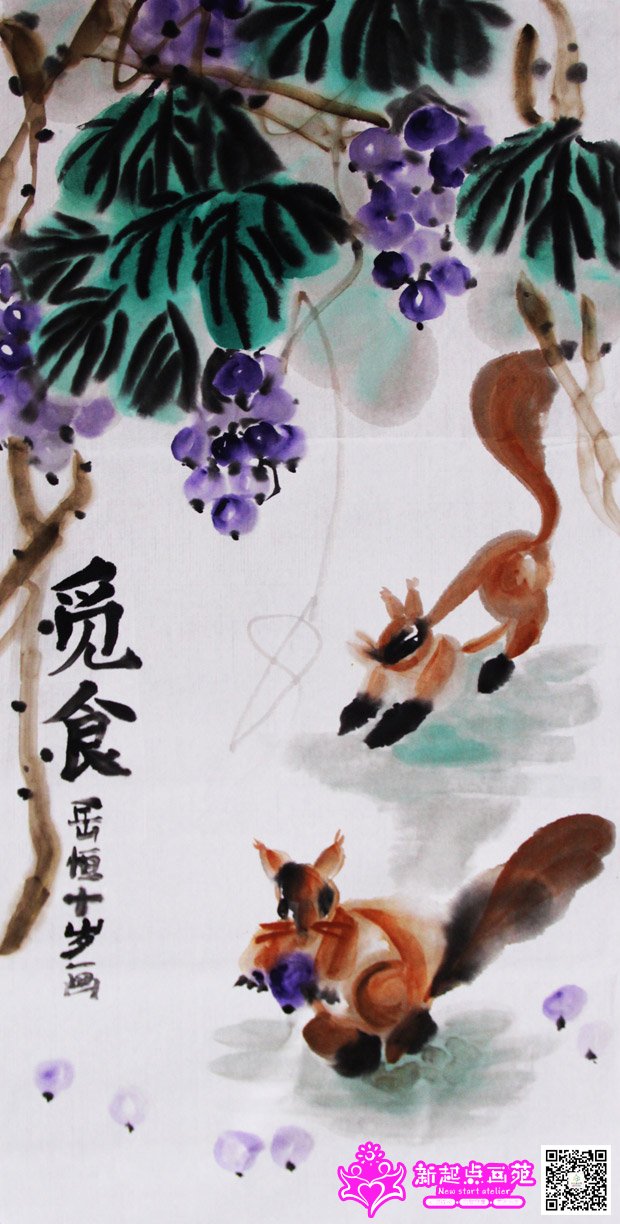 觅食
岳恒十岁画
新起点画苑
New start atelier